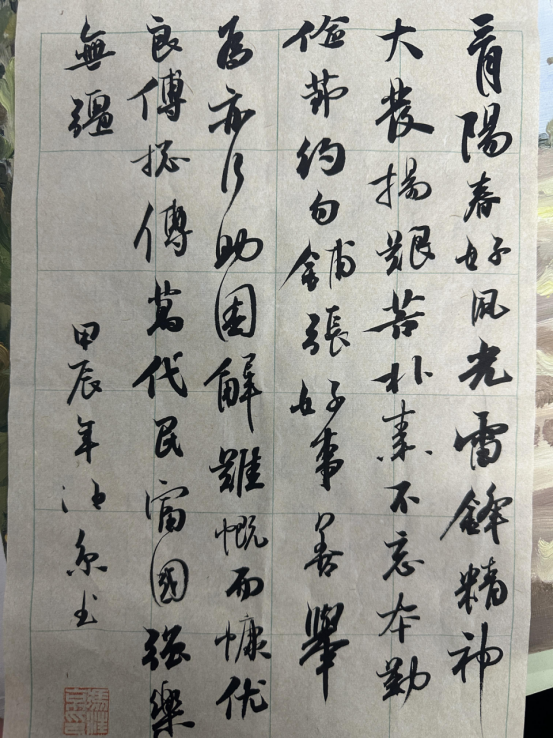 青陽春好風光雷鋒精神
大發揚艱苦朴素不忘本勤
儉節約勿鋪張好事善舉
為亦行助困解難慨而慷优
良傳統傳萬代民富國強樂
無疆
甲辰年 京书